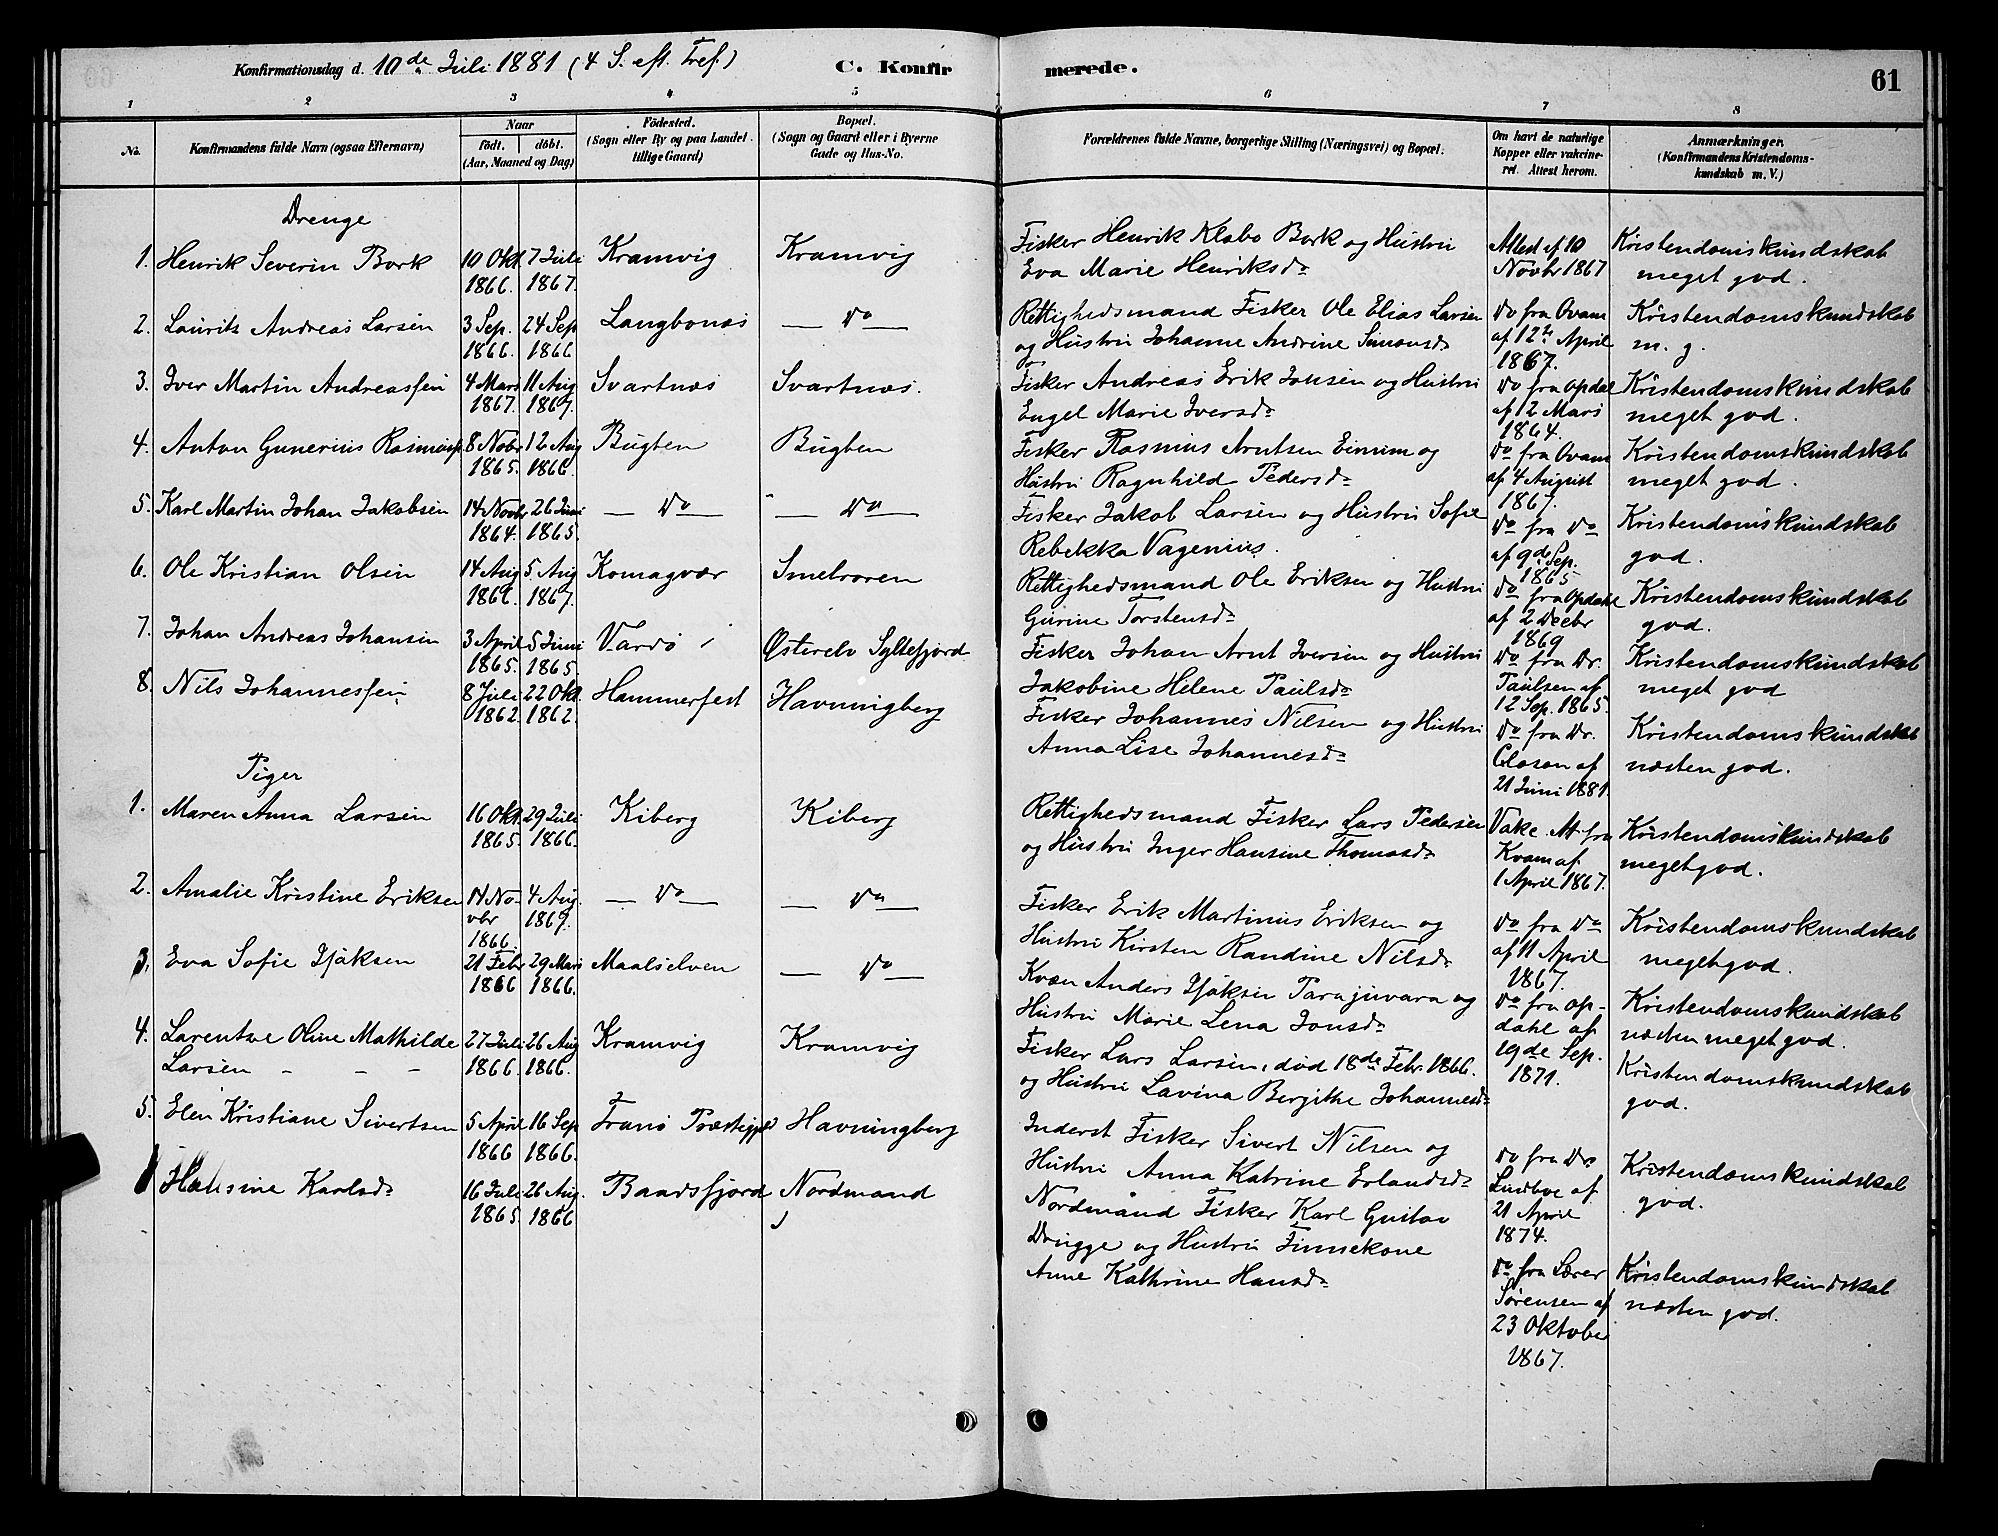 Konfirmationsdag d. 10de Juli 1881 (4 S. eft. Tref.)
C. Konfirmerede.
61
1 2 3 4 5 6 7 8
No.
Konfirmandens fulde Navn (ogsaa Efternavn)
Naar
födt. döbt.
(Aar, Maaned og Dag)
Födested.
(Sogn eller By og paa Landet
tillige Gaard)
Bopæl.
(Sogn og Gaard eller i Byerne
Gade og Hus-No.
Forældrenes fulde Navne, borgerlige Stilling (Næringsvei) og Bopæl.
Om havt de naturlige
Kopper eller vakcine-
ret. Attest herom.
Anmærkninger.
(Konfirmandens Kristendoms-
kundskab m. V.)
Drenge
1. Henrik Severin Bork 10 Okt. 1866. 7 Juli 1867. Kramvig Kramvig
Fisker Henrik Klabo Bork og Hustru
Eva Marie Henriksd.
Attest af 10
Novbr 1867
Kristendomskundskab
meget god.
2. Laurits Andreas Larsen 3 Sep. 1866. 24 Sep 1866 Langbonæs — Do —
Rettighedsmand Fisker Ole Elias Larsen
og Hustru Johanne Andrine Simonsd.
Do fra Qvam
af 12te April
1867.
Kristendomskundskab
m. g.
3. Iver Martin Andreassen 4 Mars 1867. 11 Aug 1867. Svartnæs Svartnæs.
Fisker Andreas Erik Jonsen og Hustru
Engel Marie Iversd.
Do fra Opdal
af 12 Mars
1864.
Kristendomskundskab
meget god.
4. Anton Gunerius Rasmuss. 8 Nobr 1865. 12 Aug 1866. Bugten Bugten
Fisker Rasmus Arntsen Einum og
Hustru Ragnhild Pedersd.
Do fra Qvam
af 4 August
1867.
Kristendomskundskab
meget god.
5. Karl Martin Johan Jakobsen 14 Novbr 1864. 26 Juni 1865. — Do — — Do —
Fisker Jakob Larsen og Hustru Sofie
Rebekka Vagenius.
Do fra Do
af 9de Sep.
1865
Kristendomskundskab
god.
6. Ole Kristian Olsen 14 Aug 1866. 5. Aug 1867. Komagvær Smelroren
Rettighedsmand Ole Eriksen og Hustru
Gurine Torstensd.
Do fra Opdahl
af 2 Decbr
1869
Kristendomskundskab
god.
7. Johan Andreas Johansen 3 April 1865. 5 Juni 1865. Vardö Østerelv Syltefjord
Fisker Johan Arnt Iversen og Hustru
Jakobine Helene Paulsd.
Do fra Dr.
Paulsen af
12 Sep. 1865.
Kristendomskundskab
meget god
8. Nils Johannessen 8 Juli 1862. 22 Okt. 1862. Hammerfest Havningberg
Fisker Johannes Nilsen og Hustru
Anna Lise Johannesd.
Do fra Dr.
Closon af
21 Juni 1881.
Kristendomskundskab
næsten god.
Piger
1. Maren Anna Larsen 16 Okt. 1865. 29 Juli 1866. Kiberg Kiberg
Rettighedsmand Fisker Lars Pedersen
og Hustru Inger Hansine Thomasd.
Vakc. Att. fra
Kvam af
1 April 1867.
Kristendomskundskab
meget god.
2. Amalie Kristine Eriksen 14 No-vbr 1866. 4 Aug. 1867. — Do — — Do —
Fisker Erik Martinus Eriksen og
Hustru Kirsten Randine Nilsd.
Do fra Do
af 11 April
1867.
Kristendomskundskab
meget god.
3. Eva Sofie Isaksen 21 Febr 1866 29 Mars 1866. Maalselven — Do —
Kvæn Anders Isaksen Parajuvara og
Hustru Marie Lena Jonsd.
Do fra Op-
dahl af
19de Sep.
1871.
Kristendomskundskab
næsten meget god.
4. Larentse Oline Mathilde 27 Juli 1866. 26 Aug 1866. Kramvig Kramvig
Larsen - - -
Fisker Lars Larsen, död 18de Febr. 1866.
og Hustru Lavina Bergithe Johannesd.
Kristendomskundskab
god.
5. Elen Kristiane Sivertsen 5 April 1866 16 Sep 1866. Tranö Præstegjeld Havningberg
Inderst Fisker Sivert Nilsen og
Hustru Anna Katrine Erlandsd.
Do fra Dr.
Lindboe af
21 April
1874.
Kristendomskundskab
god.
Hansine Karlsd. 16 Juli 1865 26 Aug. 1866 Baadsfjord Nordmand
Nordmand Fisker Karl Gustav
Drugge og Hustru Finnekone
Anne Kathrine Hansd.
Do fra Lærer
Sørensen af
23 Oktober
1867.
Kristendomskundskab
næsten god.